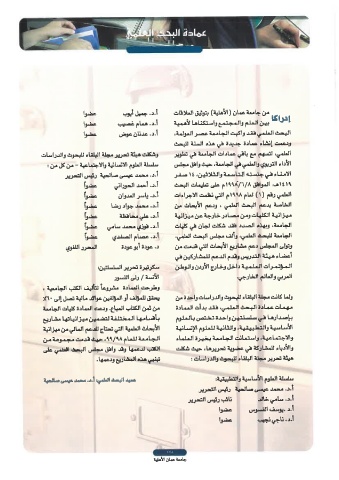 عمادة البحث العلمي
إدراكًا
من جامعة عمان (الأهلية) بتوثيق العلاقات
بين العلم والمجتمع واستكناهًا لأهمية
البحث العلمي فقد واكبت الجامعة عصر العولمة،
ودعت إنشاء عمادة جديدة في هذه السنة للبحث
العلمي، تسهم مع باقي عمادات الجامعة في تطوير
الأداء التربوي والعلمي في الجامعة، حيث وافق مجلس
الأمناء في جلسته التاسعة والثلاثين، ١٤ صفر
١٤١٩هـ، الموافق ١٩٩٨/٦/٨م على تعليمات البحث
العلمي رقم (١) لعام ١٩٩٨م التي نظمت الإجراءات
الخاصة بدعم البحث العلمي، ودعم الأبحاث من
ميزانية الكليات ومن مصادر خارجة عن ميزانية
الجامعة، وبهذا الصدد فقد شكلت لجان في كليات
الجامعة للبحث العلمي، وألف مجلس للبحث العلمي،
وتولى المجلس دعم مشاريع الأبحاث التي قدمت من
أعضاء هيئة التدريس وقدم الدعم للمشاركين في
المؤتمرات العلمية داخل وخارج الأردن والوطن
العربي والعالم الخارجي.
ولما كانت مجلة البلقاء للبحوث والدراسات واحدة من
مهمات عمادة البحث العلمي، فقد بدأت العمادة
بإصدارها في سلسلتين واحدة تختص بالعلوم
الأساسية والتطبيقية، والثانية للعلوم الإنسانية
والاجتماعية، واستعانت الجامعة بخبرة العلماء
والأدباء للمشاركة في عضوية تحريرها، حيث شكلت
هيئة تحرير مجلة البلقاء للبحوث والدراسات:
سلسلة العلوم الأساسية والتطبيقية:
أ.د. محمد عيسى صالحية رئيس التحرير
أ.د. سامي خالد نائب رئيس التحرير
أ.د. يوسف القسوس عضوا
أ.د. ناجي نجيب عضوا
أ.د. جميل أيوب عضوا
أ.د. همام غصيب عضوا
أ.د. عدنان عوض عضوا
وشكلت هيئة تحرير مجلة البلقاء للبحوث والدراسات
سلسلة العلوم الإنسانية والاجتماعية - من كل من:
أ.د. محمد عيسى صالحية رئيس التحرير
أ.د. أحمد الحوراني عضوا
أ.د. ياسر العدوان عضوا
أ.د. محمد جواد رضا عضوا
أ.د. علي محافظة عضوا
أ.د. فوزي محمد سامي عضوا
أ.د. عصام الصفدي عضوا
د. عودة أبو عودة المحرر اللغوي
سكرتيرة تحرير السلسلتين:
الآنسة / رلى النسور
وطرحت العمادة مشروعًا لتأليف الكتب الجامعية،
يحقق للمؤلف أو المؤلفين عوائد مالية تصل إلى ٦٠٪
من ثمن الكتاب المباع، ودعت العمادة كليات الجامعة
بأقسامها المختلفة لتضمين ميزانياتها مشاريع
الأبحاث العلمية التي تحتاج للدعم المالي من ميزانية
الجامعة للعام ٩٩/٩٨، حيث قدمت مجموعة من
الكتب لدعمها وقد وافق مجلس البحث العلمي على
تبني هذه المشاريع ودعمها.
عميد البحث العلمي أ.د. محمد عيسى صالحية
جامعة عمان الأهلية